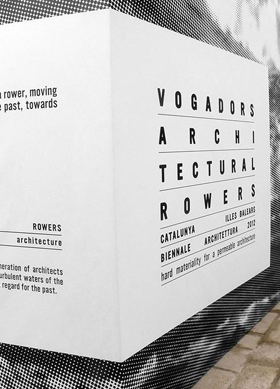 a rower, moving
past, towards
ROWERS
architecture
neration of architects
urbulent waters of the
regard for the past.
VOGADORS
ARCHI
TECTURAL
ROWERS
CATALUNYA ILLES BALEARS
BIENNALE ARCHITETTURA 2012
hard materiality for a permeable architecture